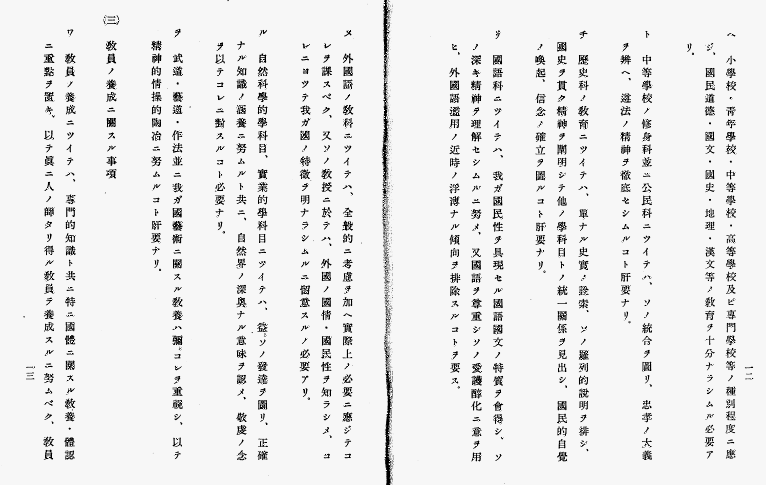 ヘ 小學校・靑年學校・中等學校・高等學校及ビ專門學校等ノ種別程度ニ應
ジ、國民道德・國文・國史・地理・漢文等ノ敎育ヲ十分ナラシムル必要ア
リ。
ト 中等學校ノ修身科竝ニ公民科ニツイテハ、ソノ統合ヲ圖リ、忠孝ノ大義
ヲ辨ヘ、遵法ノ精神ヲ徹底セシムルコト肝要ナリ。
チ 歷史科ノ敎育ニツイテハ、單ナル史實ノ詮索、ソノ羅列的說明ヲ排シ、
國史ヲ貫ク精神ヲ闡明シテ他ノ學科目トノ統一關係ヲ見出シ、國民的自覺
ノ喚起、信念ノ確立ヲ圖ルコト肝要ナリ。
リ 國語科ニツイテハ、我ガ國民性ヲ具現セル國語國文ノ特質ヲ會得シ、ソ
ノ深キ精神ヲ理解セシムルニ努メ、又國語ヲ尊重シソノ愛護醇化ニ意ヲ用
ヒ、外國語濫用ノ近時ノ浮薄ナル傾向ヲ排除スルコトヲ要ス。
一二
ヌ 外國語ノ敎科ニツイテハ、全般的ニ考慮ヲ加ヘ實際上ノ必要ニ應ジテコ
レヲ課スベク、ソノ敎授ニ於テハ、外國ノ國情・國民性ヲ知ラシメ、コ
レニヨツテ我ガ國ノ特徵ヲ明ナラシムルニ留意スルノ必要アリ。
ル 自然科學的學科目、實業的學科目ニツイテハ、益〻ソノ發達ヲ圖リ、正確
ナル知識ノ涵養ニ努ムルト共ニ、自然界ノ深奧ナル意味ヲ認メ、敬虔ノ念
ヲ以テコレニ對スルコト必要ナリ。
ヲ 武道・藝道・作法竝ニ我ガ國藝術ニ關スル敎養ハ彌〻コレヲ重視シ、以テ
精神的情操的陶冶ニ努ムルコト肝要ナリ。
(三) 敎員ノ養成ニ關スル事項
ワ 敎員ノ養成ニツイテハ、專門的知識ト共ニ特ニ國體ニ關スル敎養・體認
ニ重點ヲ置キ、以テ眞ニ人ノ師タリ得ル敎員ヲ養成スルニ努ムベク、敎員
一三